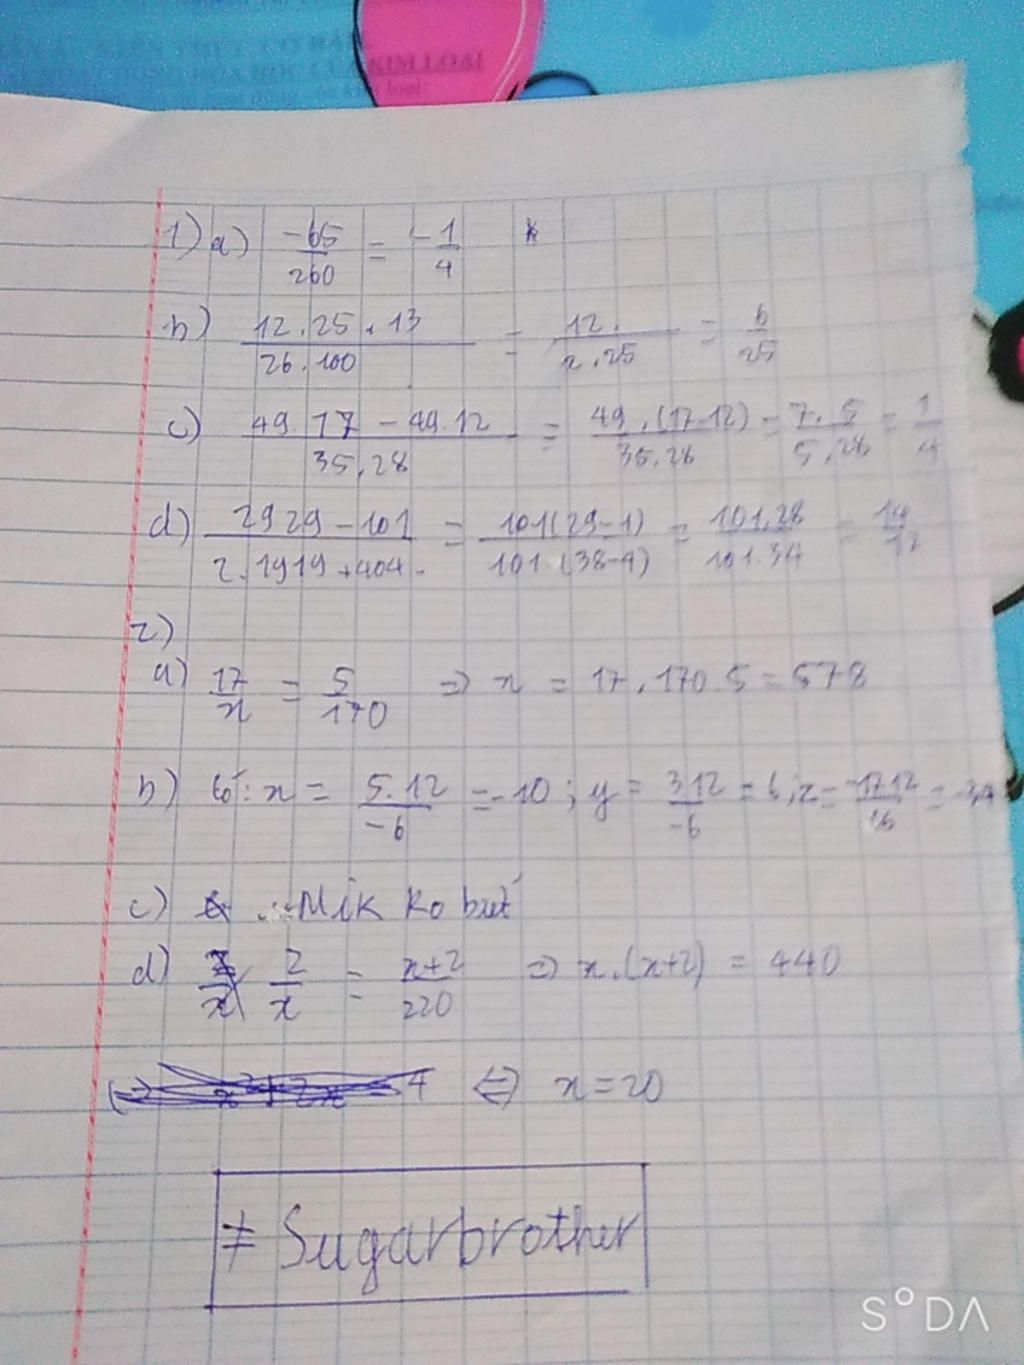 KIM LOẠI
1) a) -65/260 = -1/4
b) 12.25.13/26.100 = 12./2.25 = 6/25
c) 49.17 - 49.12/35.28 = 49.(17-12)/35.28 = 7.5/5.28 = 1/4
d) 2929-101/2.1919+404 = 101(29-1)/101(38-4) = 101.28/101.34 = 14/17
2)
a) 17/x = 5/170 => x = 17.170.5 = 578
b) có: x = 5.12/-6 = -10; y = 3.12/-6 = 6; z = -17.12/ = -34
c) Mik ko biết
d) 2/x = x+2/220 => x.(x+2) = 440
<=> x = 20
≠ Sugarbrother
S°DA